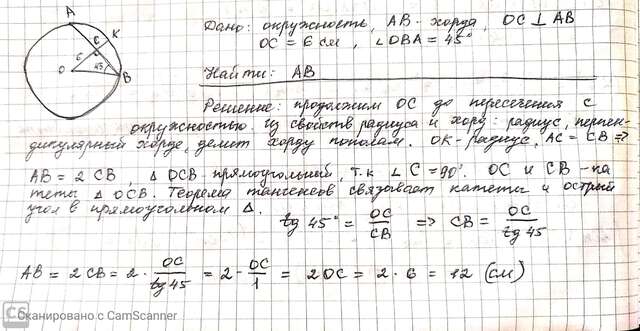 A
C
K
6
O
45
B
Дано: окружность, AB-хорда, OC ⊥ AB
OC = 6 см, ∠OBA = 45°
Найти: AB
Решение: продолжим OC до пересечения с
окружностью. Из свойств радиуса и хорд: радиус, перпен-
дикулярный хорде, делит хорду пополам. OK-радиус, AC = CB ⇒
AB = 2 CB, △ OCB-прямоугольный, т.к ∠C = 90°. OC и CB - ка
теты △ OCB. Теорема тангенсов связывает катеты и острый
угол в прямоугольном △.
tg 45° = OC/CB ⇒ CB = OC/tg 45
AB = 2 CB = 2 · OC/tg 45 = 2 · OC/1 = 2 OC = 2 · 6 = 12 (см)
CS Сканировано с CamScanner